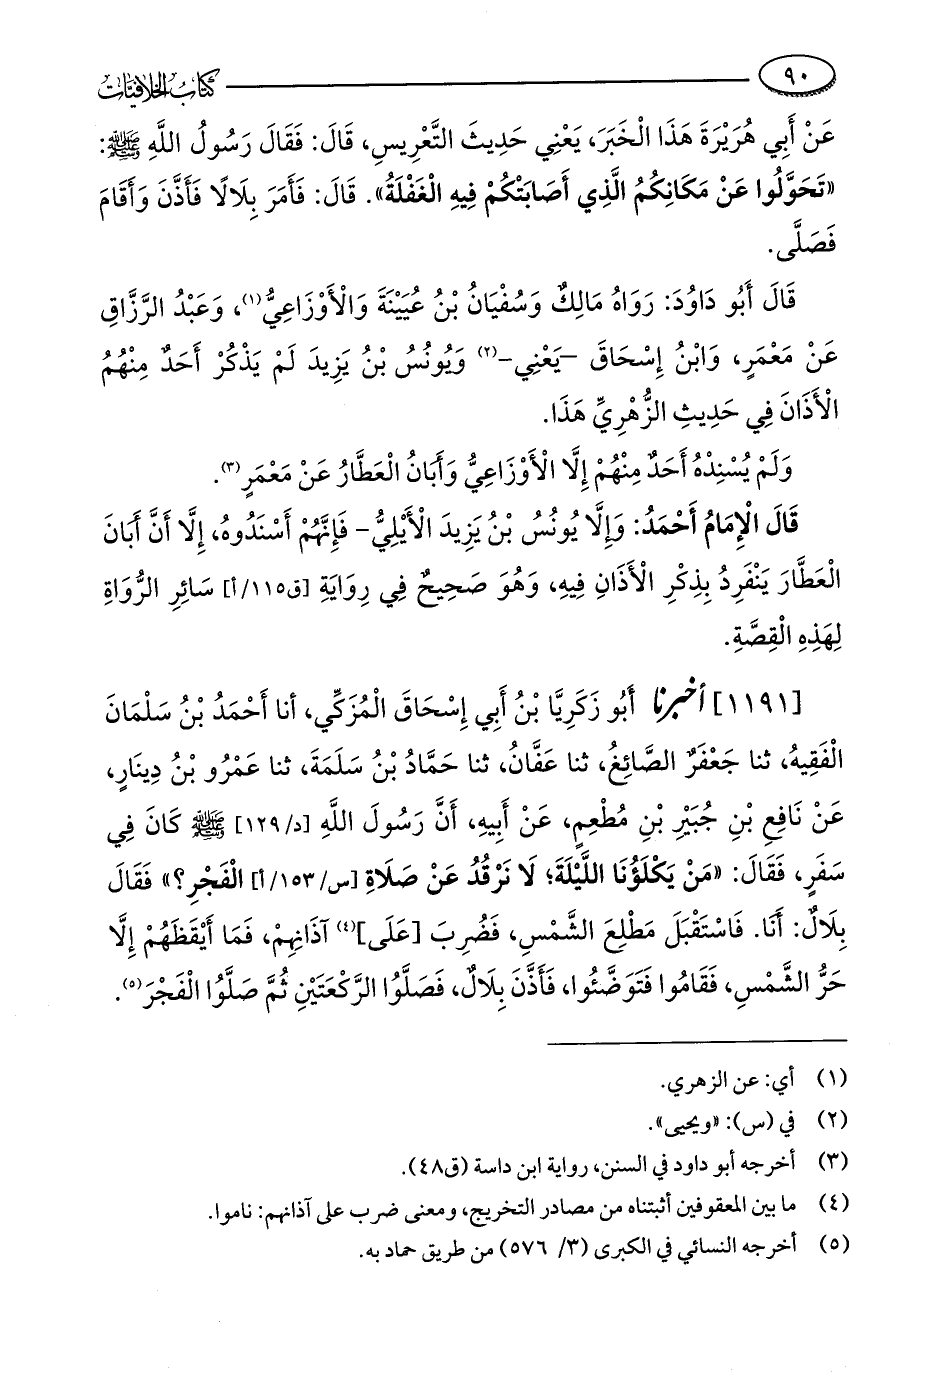 ٩٠
كتاب الخلافيات
عَنْ أَبِي هُرَيْرَةَ هَذَا الْخَبَرَ، يَعْنِي حَدِيثَ التَّعْرِيسِ، قَالَ: فَقَالَ رَسُولُ اللَّهِ ﷺ:
«تَحَوَّلُوا عَنْ مَكَانِكُمُ الَّذِي أَصَابَتْكُمْ فِيهِ الْغَفْلَةُ». قَالَ: فَأَمَرَ بِلَالًا فَأَذَّنَ وَأَقَامَ
فَصَلَّى.
قَالَ أَبُو دَاوُدَ: رَوَاهُ مَالِكٌ وَسُفْيَانُ بْنُ عُيَيْنَةَ وَالْأَوْزَاعِيُّ(١)، وَعَبْدُ الرَّزَّاقِ
عَنْ مَعْمَرٍ، وَابْنُ إِسْحَاقَ -يَعْنِي-(٢) وَيُونُسُ بْنُ يَزِيدَ لَمْ يَذْكُرْ أَحَدٌ مِنْهُمُ
الْأَذَانَ فِي حَدِيثِ الزُّهْرِيِّ هَذَا.
وَلَمْ يُسْنِدْهُ أَحَدٌ مِنْهُمْ إِلَّا الْأَوْزَاعِيُّ وَأَبَانُ الْعَطَّارُ عَنْ مَعْمَرٍ(٣).
قَالَ الْإِمَامُ أَحْمَدُ: وَإِلَّا يُونُسُ بْنُ يَزِيدَ الْأَيْلِيُّ- فَإِنَّهُمْ أَسْنَدُوهُ، إِلَّا أَنَّ أَبَانَ
الْعَطَّارَ يَنْفَرِدُ بِذِكْرِ الْأَذَانِ فِيهِ، وَهُوَ صَحِيحٌ فِي رِوَايَةِ [ق١١٥/أ] سَائِرِ الرُّوَاةِ
لِهَذِهِ الْقِصَّةِ.
[١١٩١] أخبرنا أَبُو زَكَرِيَّا بْنُ أَبِي إِسْحَاقَ الْمُزَكِّي، أنا أَحْمَدُ بْنُ سَلْمَانَ
الْفَقِيهُ، ثنا جَعْفَرٌ الصَّائِغُ، ثنا عَفَّانُ، ثنا حَمَّادُ بْنُ سَلَمَةَ، ثنا عَمْرُو بْنُ دِينَارٍ،
عَنْ نَافِعِ بْنِ جُبَيْرِ بْنِ مُطْعِمٍ، عَنْ أَبِيهِ، أَنَّ رَسُولَ اللَّهِ [د/١٢٩] ﷺ كَانَ فِي
سَفَرٍ، فَقَالَ: «مَنْ يَكْلَؤُنَا اللَّيْلَةَ؛ لَا نَرْقُدُ عَنْ صَلَاةِ [س/١٥٣/أ] الْفَجْرِ؟» فَقَالَ
بِلَالٌ: أَنَا. فَاسْتَقْبَلَ مَطْلِعَ الشَّمْسِ، فَضُرِبَ [عَلَى](٤) آذَانِهِمْ، فَمَا أَيْقَظَهُمْ إِلَّا
حَرُّ الشَّمْسِ، فَقَامُوا فَتَوَضَّئُوا، فَأَذَّنَ بِلَالٌ، فَصَلَّوُا الرَّكْعَتَيْنِ ثُمَّ صَلَّوُا الْفَجْرَ(٥).
(١) أي: عن الزهري.
(٢) في (س): «ويحيى».
(٣) أخرجه أبو داود في السنن، رواية ابن داسة (ق٤٨).
(٤) ما بين المعقوفين أثبتناه من مصادر التخريج، ومعنى ضرب على آذانهم: ناموا.
(٥) أخرجه النسائي في الكبرى (٣/ ٥٧٦) من طريق حماد به.